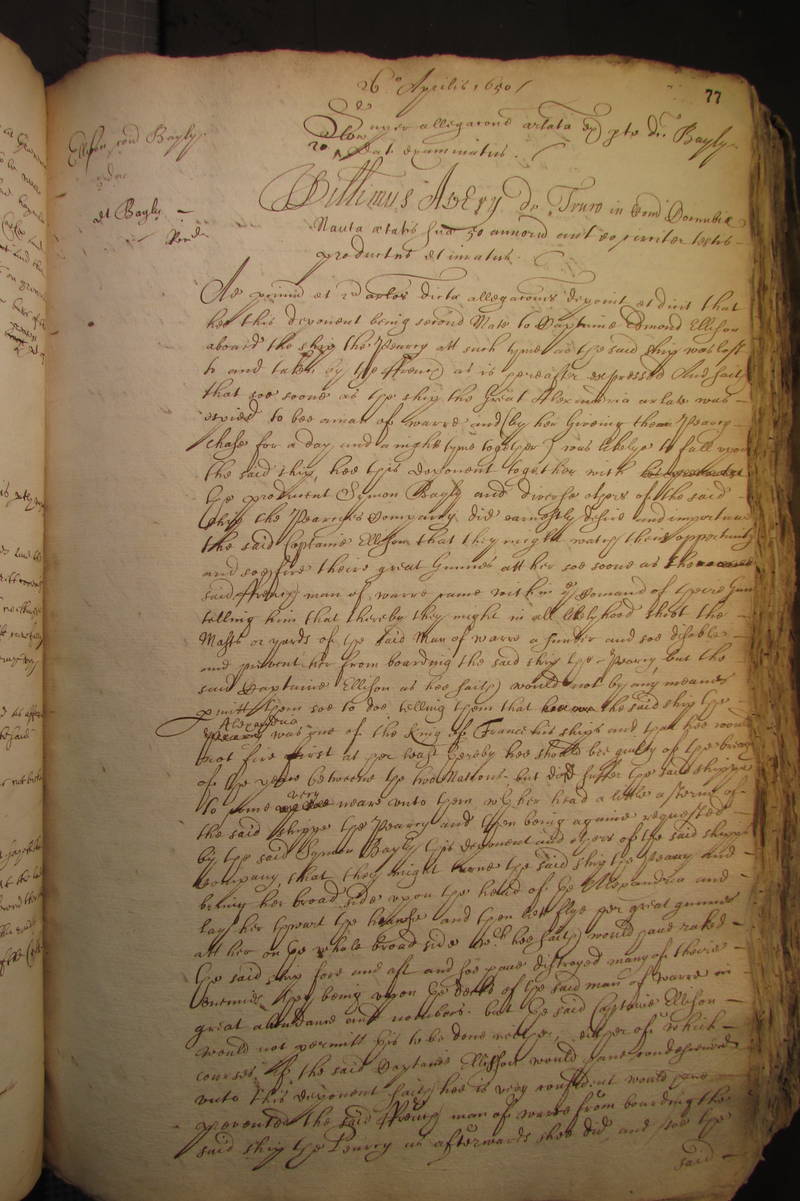 26:o Aprilis 1650 /
77
Super allegatione arlata ex pte dci Bayly
dat. examinatus.
Ellison cond Bayly
et Bayly
Willimus Avery de Truro in Com Cornubiæ
Nauta ætatis 50 annorũ aut eo circiter testis
productus et iuratus.
Ad primũ et 2um arlos dicta allegaconis deponit et dicit that
hee this deponent being second Mate to Captaine Edmond Ellison
aboard the ship the Pearry att such tyme as the said ship was lost
to and taken by the ffrench as is hereafter expressed And saith
that soe soone as the ship the Great Alexandria arlate was
espied to bee a man of warre and (by her giveing the Pearry
chase for a day and a night tyme together) was likelye to fall upon
the said ship, hee this deponent together with
the producent Symon Bayly and diverse others of the said
ship the Pearryes Company did earnestly desire and importune
the said Captaine Ellison that they might watch their opportunity
and soe fire theire great Gunnes att her soe soone as the
said ffrench man of warre came within ye Comand of theire Guns
telling him that thereby they might in all likelyhood shott the
Masts or yards of the said Man of warre a sunder and soe disable
and prevent her from boarding the said ship the Pearry but the
said Captaine Ellison as hee saith would not by any meanes
pmitt them soe to doe telling them that the said ship the
Alexandria
was one of the King of France his ships and that hee would
not fire first at her least thereby hee should bee guilty of the breach
of the peace betweene the two Nations but did suffer the said shippe
to come very neare unto them wch her head a little a sterne of
the said shippe the Pearry and then being againe requested
by the said Symon Bayly this deponent and others of the said shipps
company that they might turne the said ship the Pearry and
bring her broad side upon the head of the Alexandria and
lay her thwart the hawse and then let flye her great gunnes
att her on the whole broad side wch hee saith would have raked
the said ship fore and aft and soe have distroyed many of theire
enemies they being upon the decks of the said man of warre in
great abundance and nombers. but the said Captaine Ellison
would not permitt this to be done neither, either of which
courses if the said Captaine Ellison would have condescended
unto this deponent saith hee is very confident would have
prevented the said ffrench man of warre from boarding the
said ship the Pearry as afterwards shee did, and soe the
said